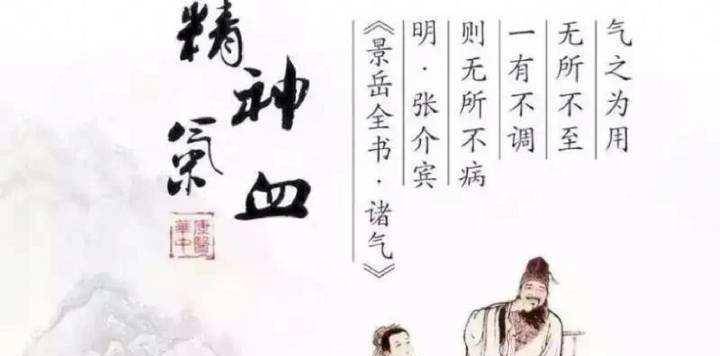 气之为用
无所不至
一有不调
则无所不病
明·张介宾
《景岳全书·诸气》
精氣
神血
康醫
華中